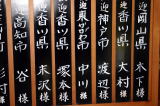 迎岡山県 木下様
迎香川県 大村様
迎神戸市 渡辺様
迎 市 中川様
迎香川県 塚本様
迎香川県 末沢様
迎高知市 谷様